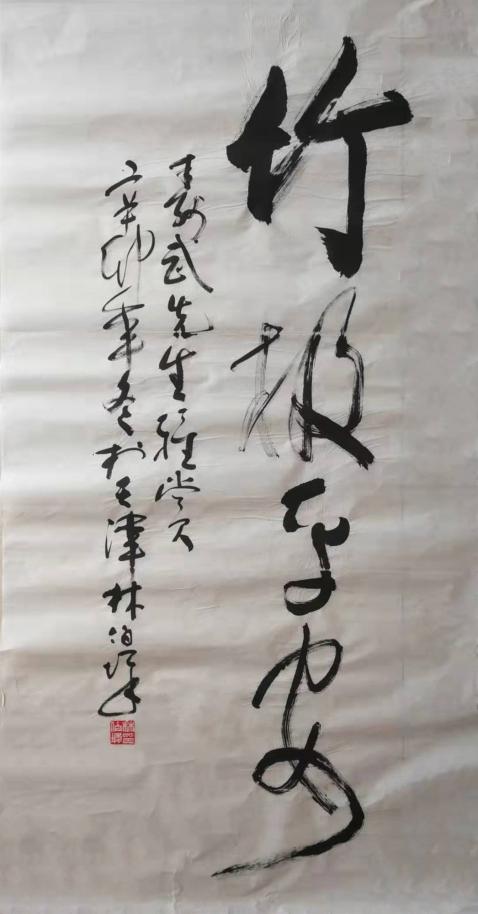 竹报平安
武先生雅赏
辛卯年冬于天津林伯墀